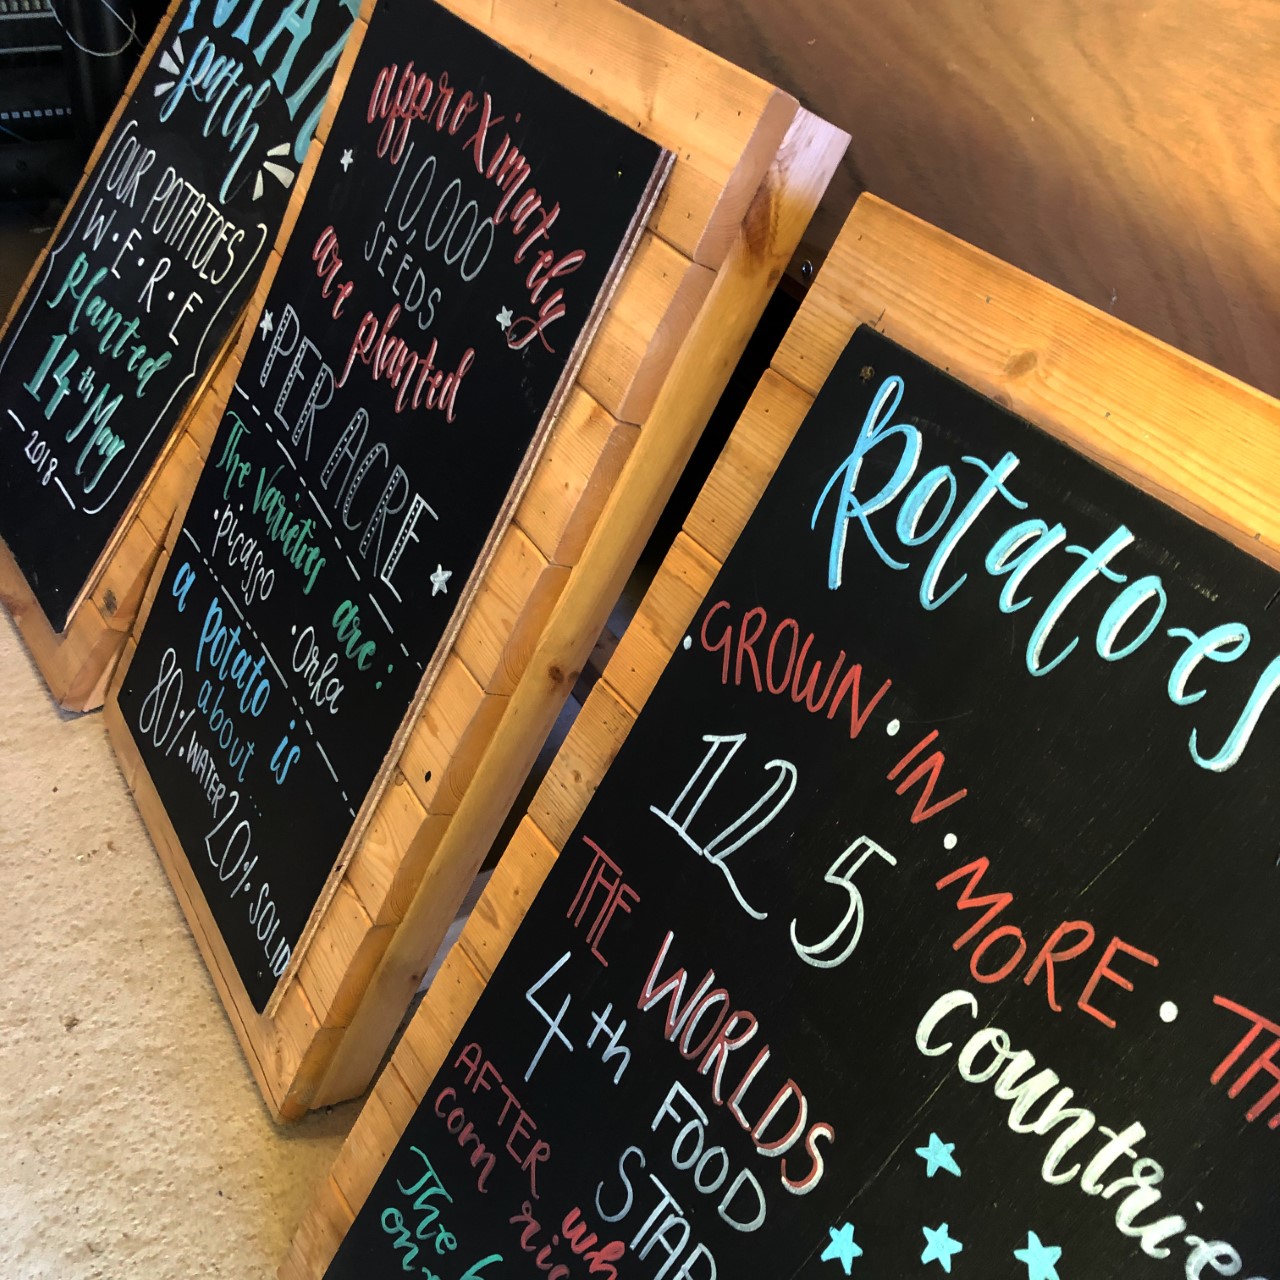 patch
OUR POTATOES
W·E·R·E
planted
14th May
2018
approximately
10,000
SEEDS
are planted
PER ACRE
The varieties are:
·picasso ·Orka
a potato is
about
80% WATER 20% SOLID
Potatoes
·GROWN·IN·MORE·
125
countries
THE WORLDS
4th FOOD
AFTER
corn
The